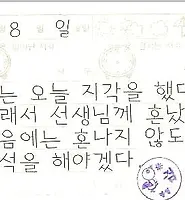 8 일
는 오늘 지각을 했다
래서 선생님께 혼났
음에는 혼나지 않도
석을 해야겠다.